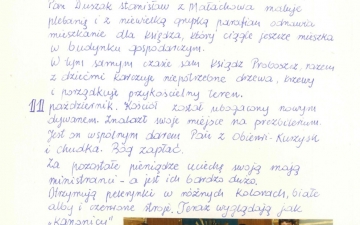 Pan Duszak Stanisław z Małachowa maluje
plebanię i z niewielką grupką parafian odnawia
mieszkanie dla księdza, który ciągle jeszcze mieszka
w budynku gospodarczym.
W tym samym czasie sam ksiądz Proboszcz, razem
z dziećmi karczuje niepotrzebne drzewa, krzewy
i porządkuje przykościelny teren.
11 październik. Kościół został ubogacony nowym
dywanem. Znalazł swoje miejsce na prezbiterium.
Jest on wspólnym darem Pań z Obierwi-Kurzysk
i Chudka. Bóg zapłać.
Za pozostałe pieniądze uciechę swoją mają
ministranci - a jest ich bardzo dużo.
Otrzymują pelerynki w różnych kolorach, białe
alby i czerwone stroje. Teraz wyglądają jak
"kanonicy"